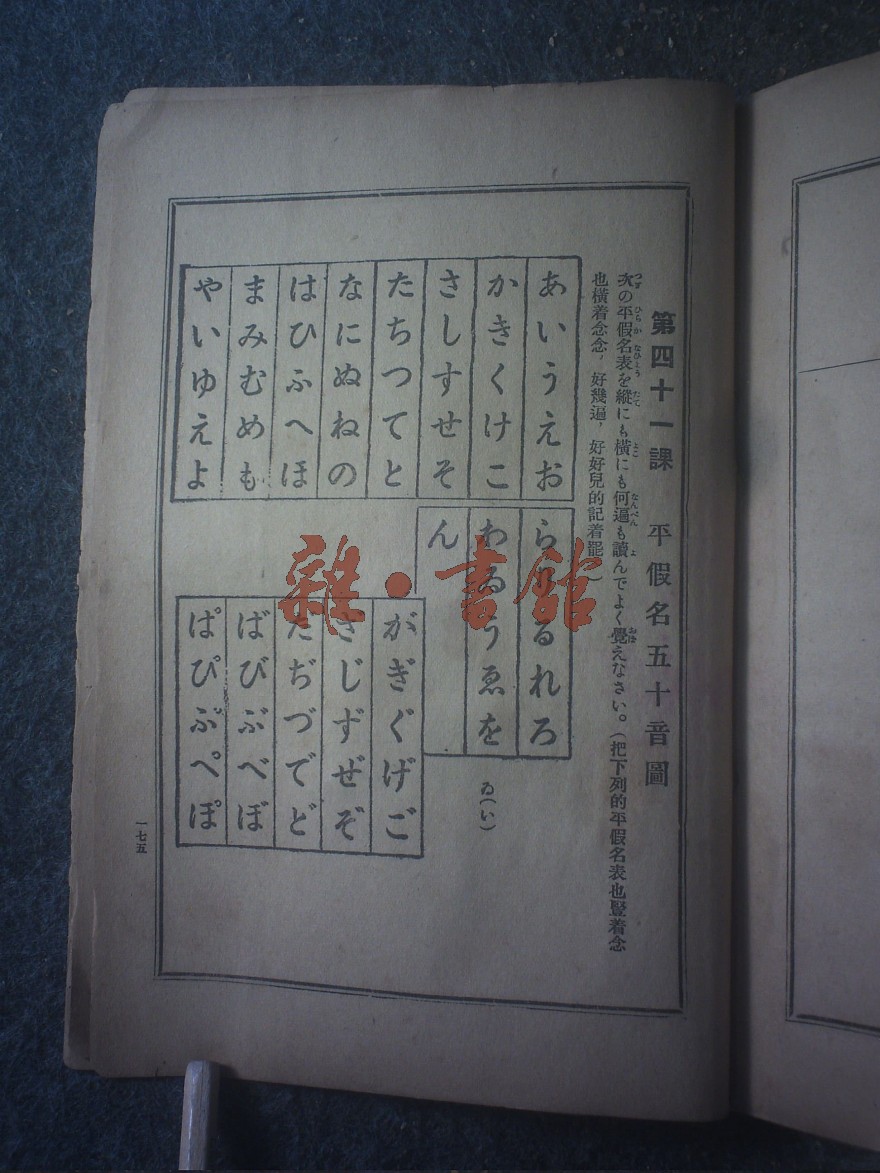 第四十一課　平假名五十音圖
次の平假名表を縱にも橫にも何遍も讀んでよく覺えなさい。（把下列的平假名表也豎着念
也橫着念念，好幾遍，好好兒的記着罷）
あいうえお
かきくけこ
さしすせそ
たちつてと
なにぬねの
はひふへほ
まみむめも
やいゆえよ
らりるれろ
わゐうゑを
ん
ゐ（い）
がぎぐげご
ざじずぜぞ
だぢづでど
ばびぶべぼ
ぱぴぷぺぽ
一七五
雜·書館